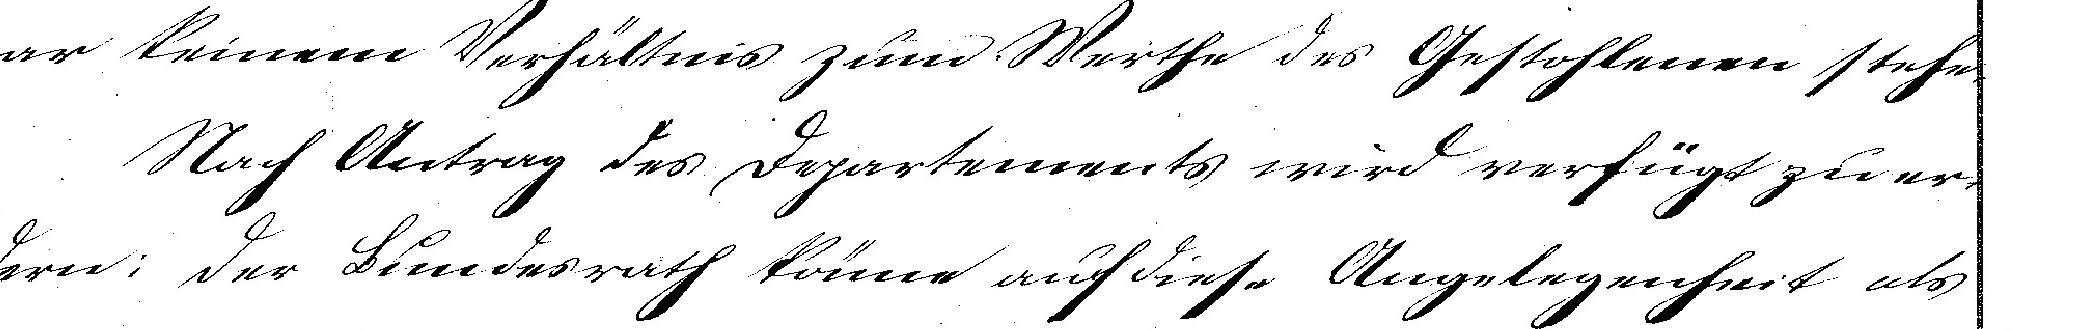 ar keinem Verhältnis zum Werthe des Gestohlenen stehe.
Nach Antrag des Departements wird verfügt zu er-
dern: der Bundesrath könne auf diese Angelegenheit als